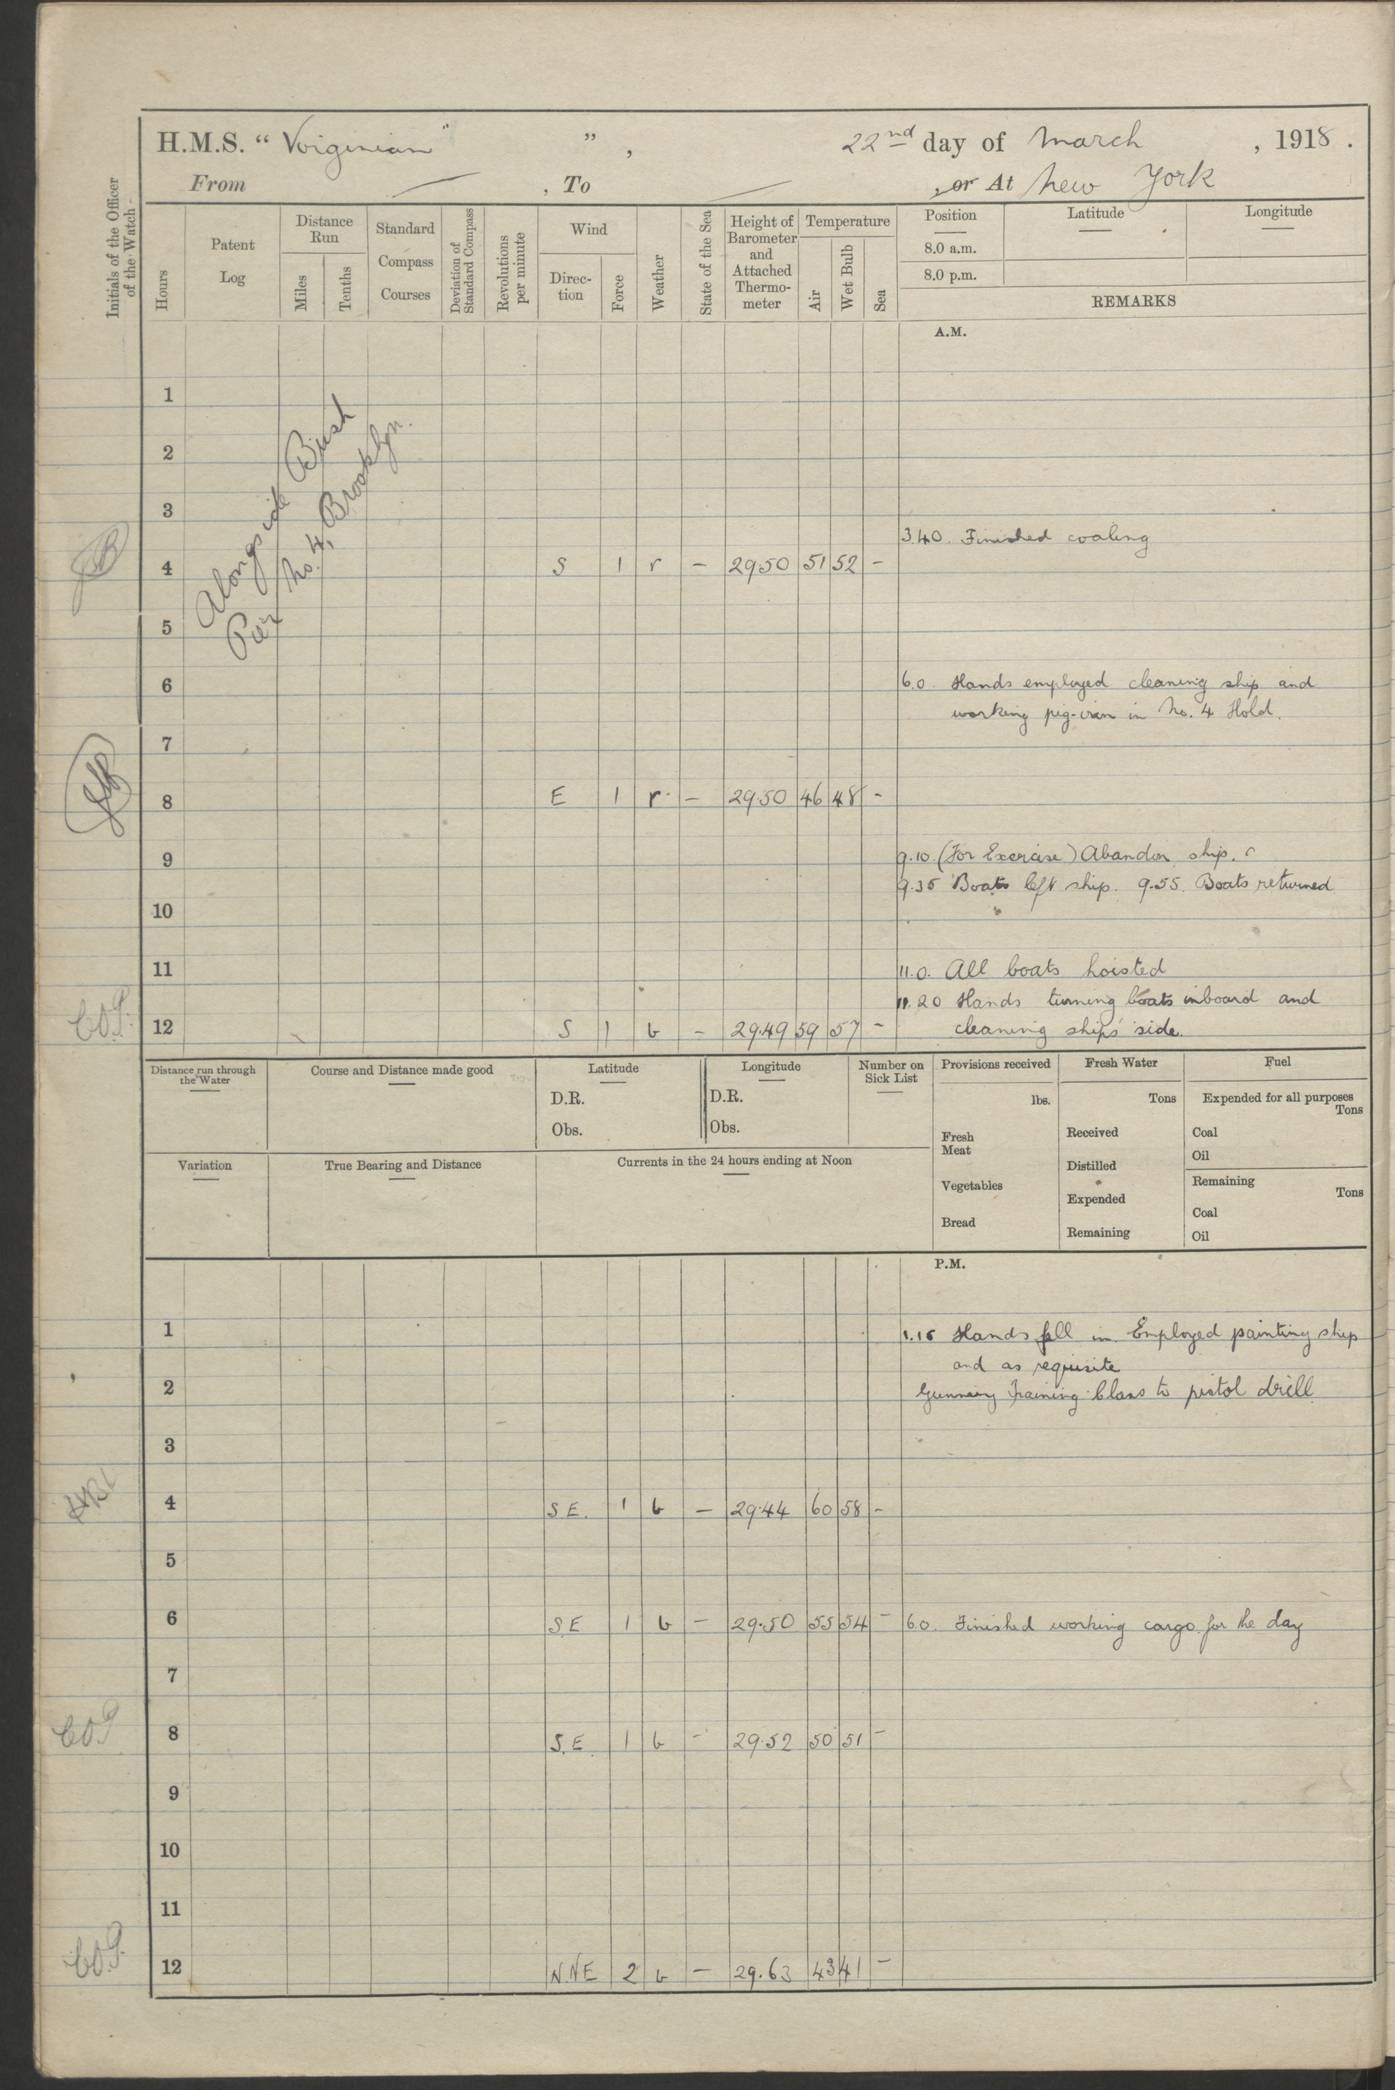 H.M.S. “ Virginian ” , 22nd day of March , 1918 .
From — , To — , or At New York
Initials of the Officer of the Watch
Hours
Patent Log
Distance Run
Miles
Tenths
Standard Compass Courses
Deviation of Standard Compass
Revolutions per minute
Wind
Direc-tion
Force
Weather
State of the Sea
Height of Barometer and Attached Thermo-meter
Temperature
Air
Wet Bulb
Sea
Position Latitude Longitude
8.0 a.m.
8.0 p.m.
REMARKS
A.M.
1
2
3
Alongside Bush
Pier No. 4, Brooklyn.
3.40. Finished coaling
4 S 1 r – 29.50 51 52 –
5
6 6.0. Hands employed cleaning ship and
working pig-iron in No. 4 Hold.
7
8 E 1 r – 29.50 46 48 –
9 9.10 (For Exercise) Abandon ship.
9.35 Boats left ship. 9.55. Boats returned
10
11 11.0. All boats hoisted
11.20 Hands turning boats inboard and
12 S 1 b – 29.49 59 57 – cleaning ships' side.
Distance run through the Water
Course and Distance made good
Latitude
D.R.
Obs.
Longitude
D.R.
Obs.
Number on Sick List
Provisions received
lbs.
Fresh Meat
Vegetables
Bread
Fresh Water
Tons
Received
Distilled
Expended
Remaining
Fuel
Expended for all purposes
Tons
Coal
Oil
Remaining
Tons
Coal
Oil
Variation
True Bearing and Distance
Currents in the 24 hours ending at Noon
P.M.
1 1.15 Hands fall in. Employed painting ship
and as requisite
2 Gunnery Training Class to pistol drill
3
4 S E. 1 b – 29.44 60 58 –
5
6 S E 1 b – 29.50 55 54 – 6.0. Finished working cargo for the day
7
8 S.E. 1 b – 29.52 50 51 –
9
10
11
12 N.N.E 2 b – 29.63 43 41 –